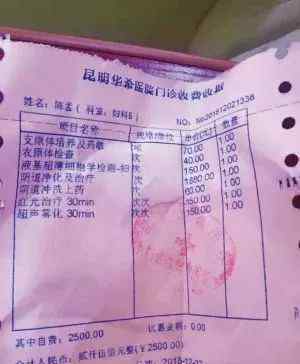 昆明华希医院门诊收费收据
姓名：陈孟（ 科室：妇科B ） NO：No201812021336
项目名称 规格/单位 单价(元) 数量
支原体培养及药敏 次 70.00 1.00
衣原体检查 次 40.00 1.00
液基超薄细胞学检测-妇 次 150.00 1.00
阴道净化及治疗 次 1680.00 1.00
阴道冲洗上药 次 60.00 1.00
红光治疗 30min 次 350.00 1.00
超声雾化 30min 次 150.00 1.00
其中自费：2500.00 优惠金额：0.00
合计人民币：贰仟伍佰元整(￥2500.00)
2018-12-02